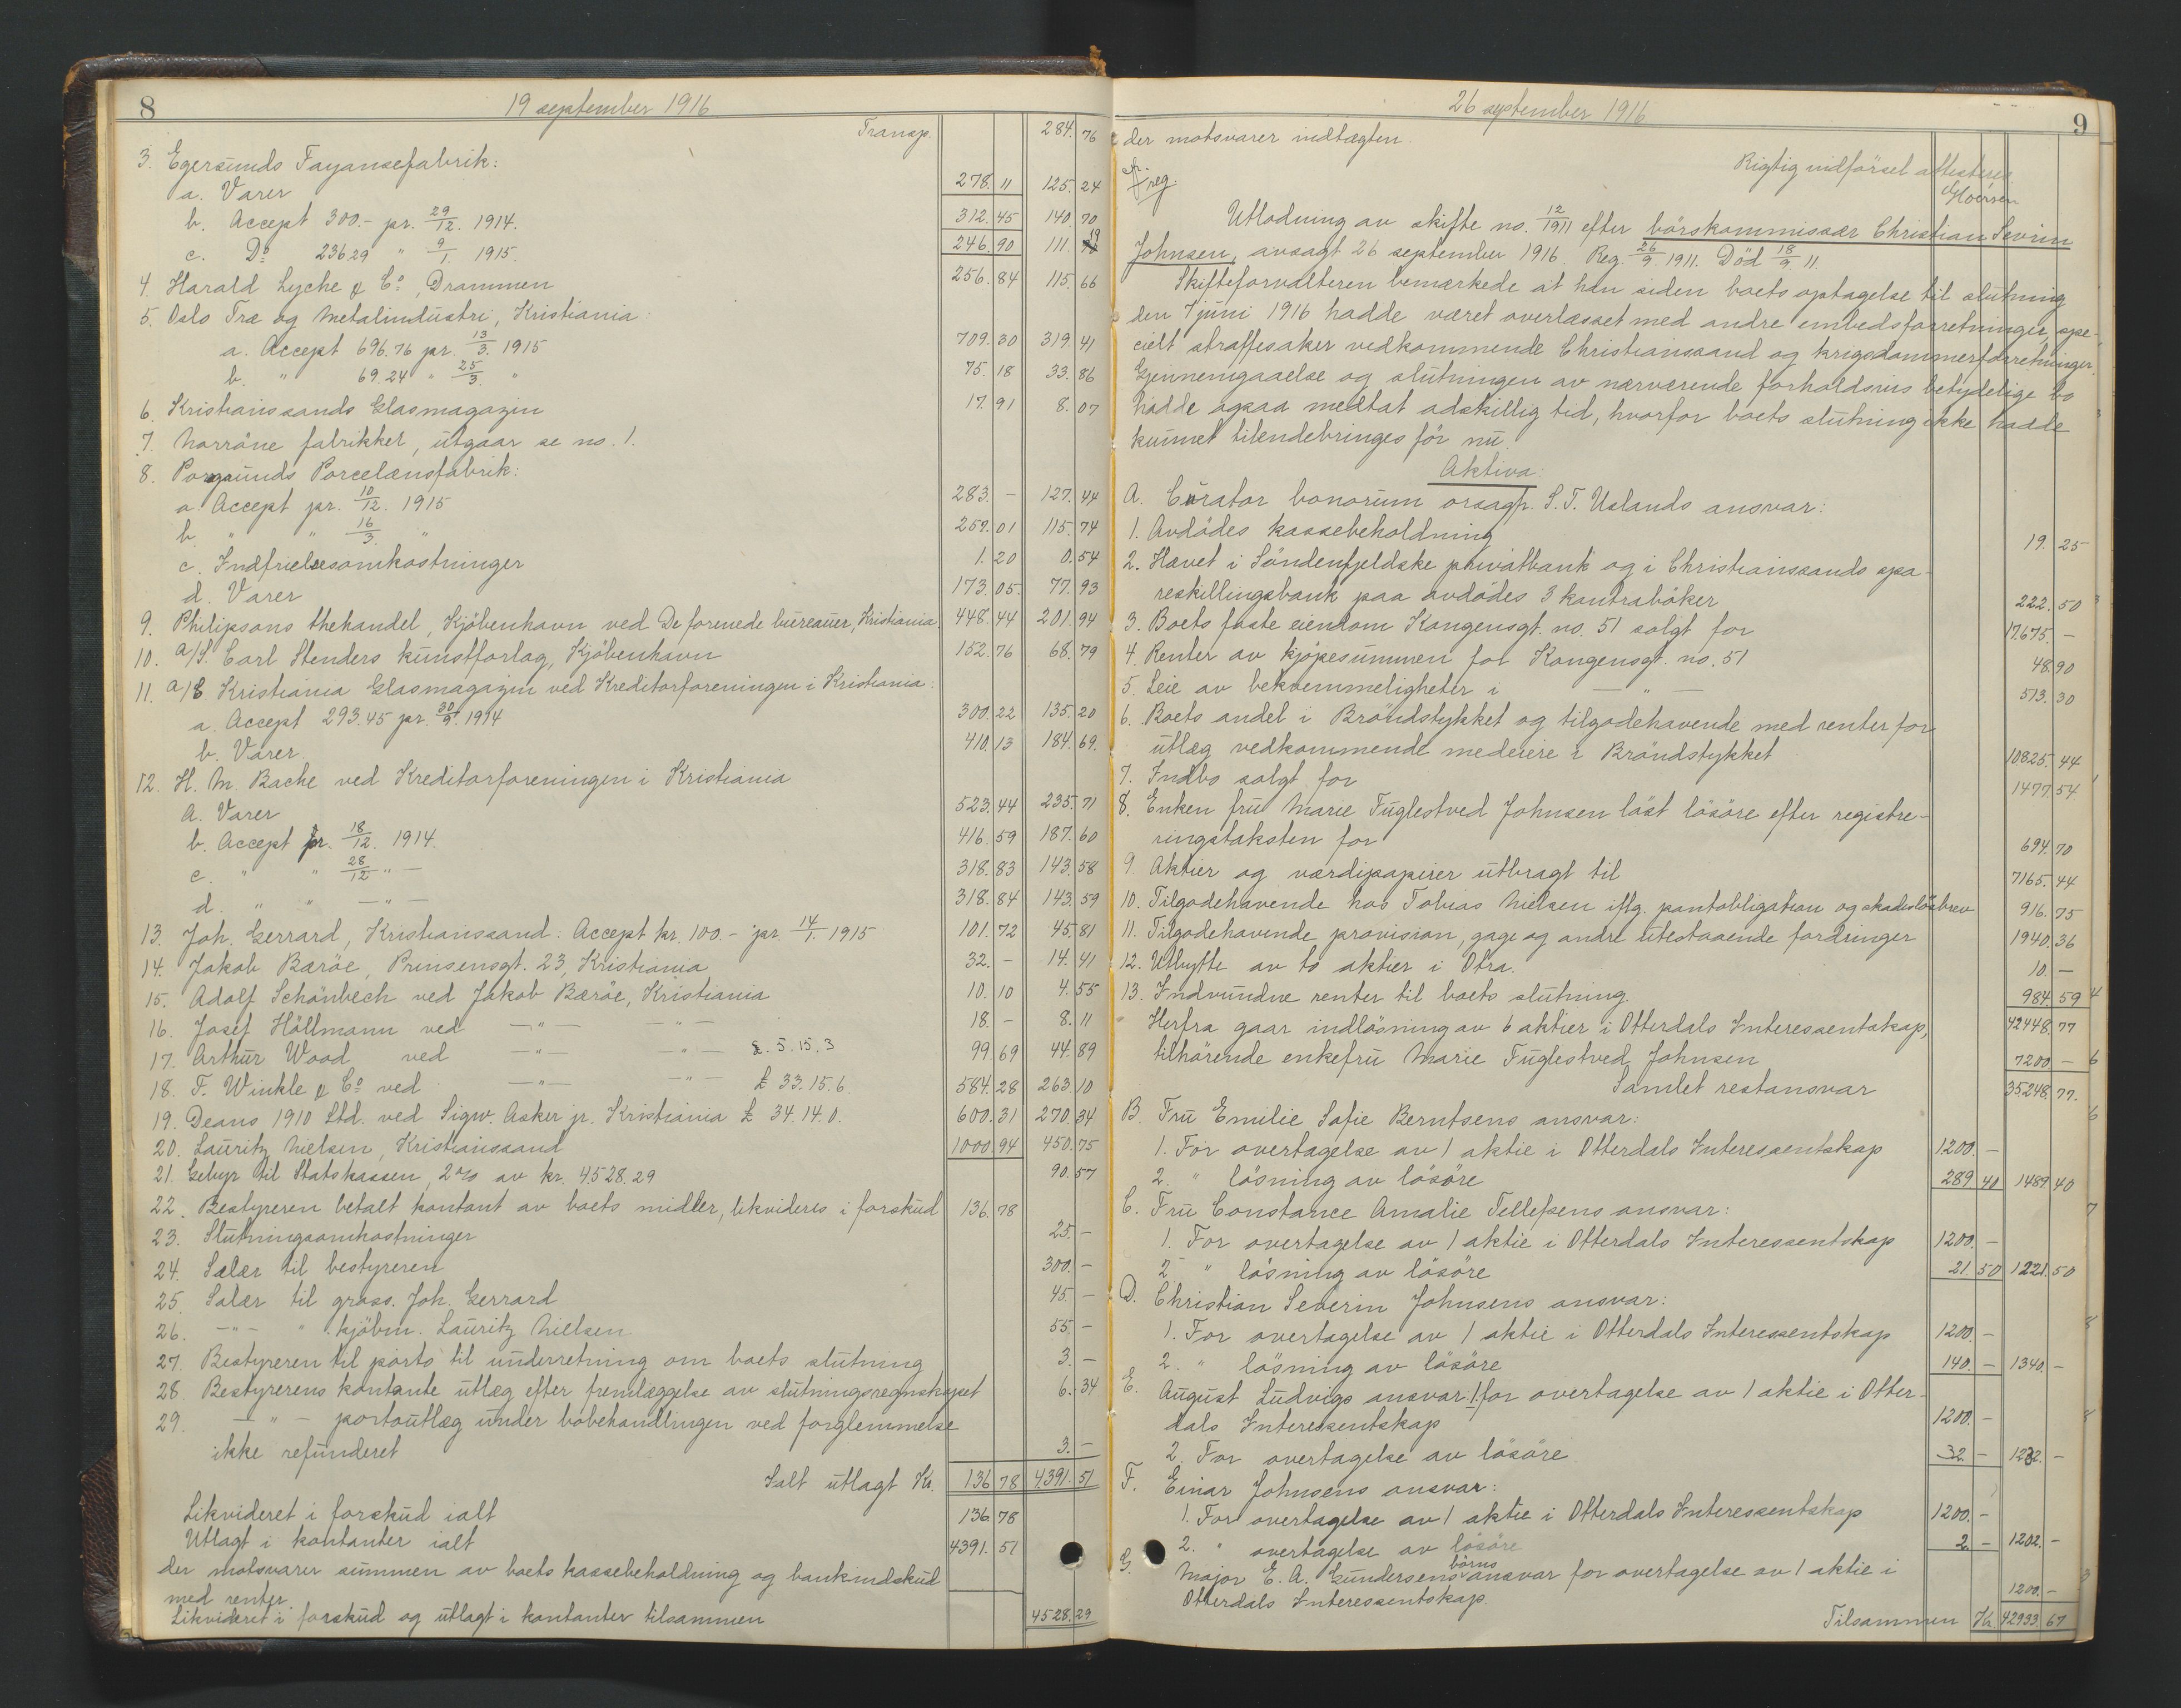 8
19 september 1916
Transp. 284. 76
3. Egersunds Fayansefabrik:
a. Varer 278. 11 125. 24
b. Accept 300.- pr. 29/12. 1914. 312. 45 140. 70
c. Do 236 29 " 9/1. 1915. 246. 90 111. 19
4. Harald Lyche & Co, Drammen 256. 84 115. 66
5. Oslo Træ og Metalindustri, Kristiania:
a. Accept 696.76 pr. 13/3. 1915 709. 30 319. 41
b. " 69.24 " 25/3. " 75. 18 33. 86
6. Kristianssands Glasmagazin 17. 91 8. 07
7. Norröne fabrikker, utgaar se no. 1.
8. Porsgrunds Porcelænsfabrik:
a. Accept pr. 10/12. 1915 283. - 127. 44
b. " " 16/3. " 257. 01 115. 74
c. Indfrielsesomkostninger 1. 20 0. 54
d. Varer 173. 05. 77. 93
9. Philipsons thehandel, Kjöbenhavn ved De forenede bureauer, Kristiania 448. 44 201. 94
10. A/S. Carl Stenders kunstforlag, Kjöbenhavn 152. 76 68. 79
11. A/S Kristiania Glasmagazin ved Kreditorforeningen i Kristiania:
a. Accept 293.45 pr. 30/9. 1914 300. 22 135. 20
b. Varer 410. 13 184. 69.
12. H. M. Bache ved Kreditorforeningen i Kristiania
a. Varer 523. 44 235. 71
b. Accept pr. 18/12. 1914. 416. 59 187. 60
c. " " 28/12 " - 318. 83 143. 58
d. " " -"- 318. 84 143. 59
13. Joh. Gerrard, Kristianssand: Accept kr. 100.- pr. 14/1. 1915 101. 72 45. 81
14. Jakob Bæröe, Prinsensgt. 23, Kristiania 32. - 14. 41
15. Adolf Schönbech ved Jakob Bæröe, Kristiania 10. 10 4. 55
16. Josef Höllmann ved -"- -"- 18. - 8. 11
17. Arthur Wood ved -"- -"- £. 5. 15. 3 99. 69 44. 89
18. F. Winkle & Co ved -"- -"- £ 33. 15. 6 584. 28 263. 10
19. Deans 1910 Ltd. ved Sigw. Asker jr. Kristiania £ 34. 14. 0. 600. 31 270. 34
20. Lauritz Nielsen, Kristianssand 1000. 94 450. 75
21. Gebyr til Statskassen, 2% av kr. 4528.29 90. 57
22. Bestyreren betalt kontant av boets midler, likvideres i forskud 136. 78
23. Slutningsomkostninger 25. -
24. Salær til bestyreren 300. -
25. Salær til gross. Joh. Gerrard 45. -
26. -"- " kjöbm. Lauritz Nielsen 55. -
27. Bestyreren til porto til underretning om boets slutning 3. -
28. Bestyrerens kontante utlæg efter fremlæggelse av slutningsregnskapet 6. 34
29. -"- portoutlæg under bobehandlingen ved forglemmelse
ikke refunderet 3. -
Ialt utlagt Kr. 136 78 4391. 51
Likvideret i forskud ialt 136. 78
Utlagt i kontanter ialt 4391. 51
der motsvarer summen av boets kassebeholdning og bankindskud
med renter.
Likvideret i forskud og utlagt i kontanter tilsammen 4528. 29
26 september 1916
9
der motsvarer indtægten.
Rigtig indförsel attesteres
reg.
Utlodning av skifte no. 12/1911 efter börskommissær Christian Severin
Johnsen, avsagt 26 september 1916. Reg. 26/9 1911. Död 18/9 11.
Skifteforvalteren bemærkede at han siden boets optagelse til slutning
den 7 juni 1916 hadde været overlæsset med andre embedsforretninger, spe-
cielt straffesaker vedkommende Christianssand og krigsdommerforretninger.
Gjennemgaaelse og slutningen av nærværende forholdsvis betydelige bo
hadde ogsaa medtat adskillig tid, hvorfor boets slutning ikke hadde
kunnet tilendebringes för nu.
Aktiva:
A. Curator bonorum orsagf. S. T. Uslands ansvar:
1. Avdödes kassebeholdning 19. 25
2. Hævet i Söndenfjeldske privatbank og i Christianssands spa-
reskillingsbank paa avdödes 3 kontraböker 222. 50
3. Boets faste eiendom Kongensgt. no. 51 solgt for 17.675. -
4. Renter av kjöpesummen for Kongensgt. no. 51 48. 90
5. Leie av bekvemmeligheter i -"- 513. 30
6. Boets andel i Bröndstykket og tilgodehavende med renter for
utlæg vedkommende medeiere i Bröndstykket 10825. 44
7. Indbo solgt for 1477 54
8. Enken fru Marie Fuglestved Johnsen löst lösöre efter registre-
ringstaksten for 694. 70
9. Aktier og værdipapirer utbragt til 7165. 44
10. Tilgodehavende hos Tobias Nielsen iflg. pantobligation og skadeslösbrev 916. 75
11. Tilgodehavende provision, gage og andre utestaaende fordringer 1940. 36
12. Utbytte av to aktier i Otra. 10. -
13. Indvundne renter til boets slutning. 984 59
42448. 77
Herfra gaar indlösning av 6 aktier i Otterdals Interessentskap,
tilhörende enkefru Marie Fuglestved Johnsen 7200 -
Samlet restansvar 35.248. 77.
B. Fru Emilie Sofie Berntsens ansvar:
1. For overtagelse av 1 aktie i Otterdals Interessentskap 1200. -
2. " lösning av lösöre 289 40 1489 40
C. Fru Constance Amalie Tellefsens ansvar:
1. For overtagelse av 1 aktie i Otterdals Interessentskap 1200. -
2 " lösning av lösöre 21. 50 1221. 50
D. Christian Severin Johnsens ansvar:
1. For overtagelse av 1 aktie i Otterdals Interessentskap 1200. -
2. " lösning av lösöre 140. - 1340. -
E. August Ludvigs ansvar: 1. for overtagelse av 1 aktie i Otter-
dals Interessentskap 1200. -
2. For overtagelse av lösöre 32 - 1232. -
F. Einar Johnsens ansvar:
1. For overtagelse av 1 aktie i Otterdals Interessentskap 1200. -
2. " overtagelse av lösöre 2 - 1202. -
G. Major E. A. Gundersens börns ansvar for overtagelse av 1 aktie i
Otterdals Interessentskap. 1200. -
Tilsammen Kr. 42933 67